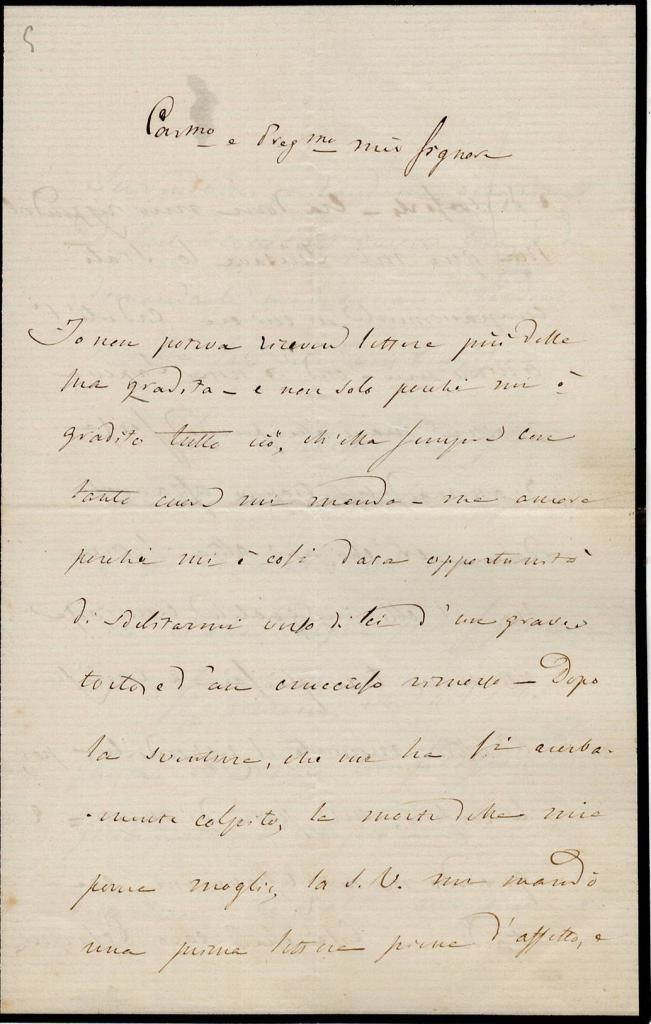 5
Carmo e Pregmo mio Signore
Io non poteva ricever lettere più della
sua gradita – e non solo perchè mi è
gradito tutto ciò, ch'ella sempre con
tanto cuore mi manda – ma ancora
perchè mi è così data opportunità
di sdebitarmi verso di Lei d'un grave
torto e d'un cruccioso rimorso – Dopo
la sventura, che me ha sì acerba-
-mente colpito, la morte della mia
povera moglie, la S. V. mi mandò
una prima lettera piena d'affetto, e